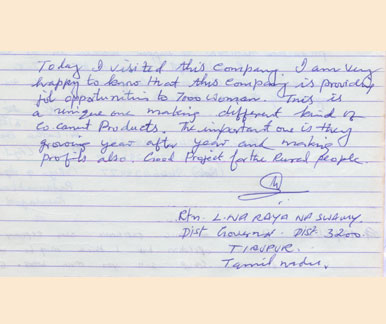 Today I visited this company. I am very
happy to know that this company is providing
job opportunities to 7000 woman. This is
a unique one making different kind of
Coconut Products. The important one is they
growing year after year and making
profits also. Good Project for the Rural people.
Rtn. L. NARAYANASWAMY
Dist Governor. Dist. 3200
TIRUPUR.
Tamil nadu.